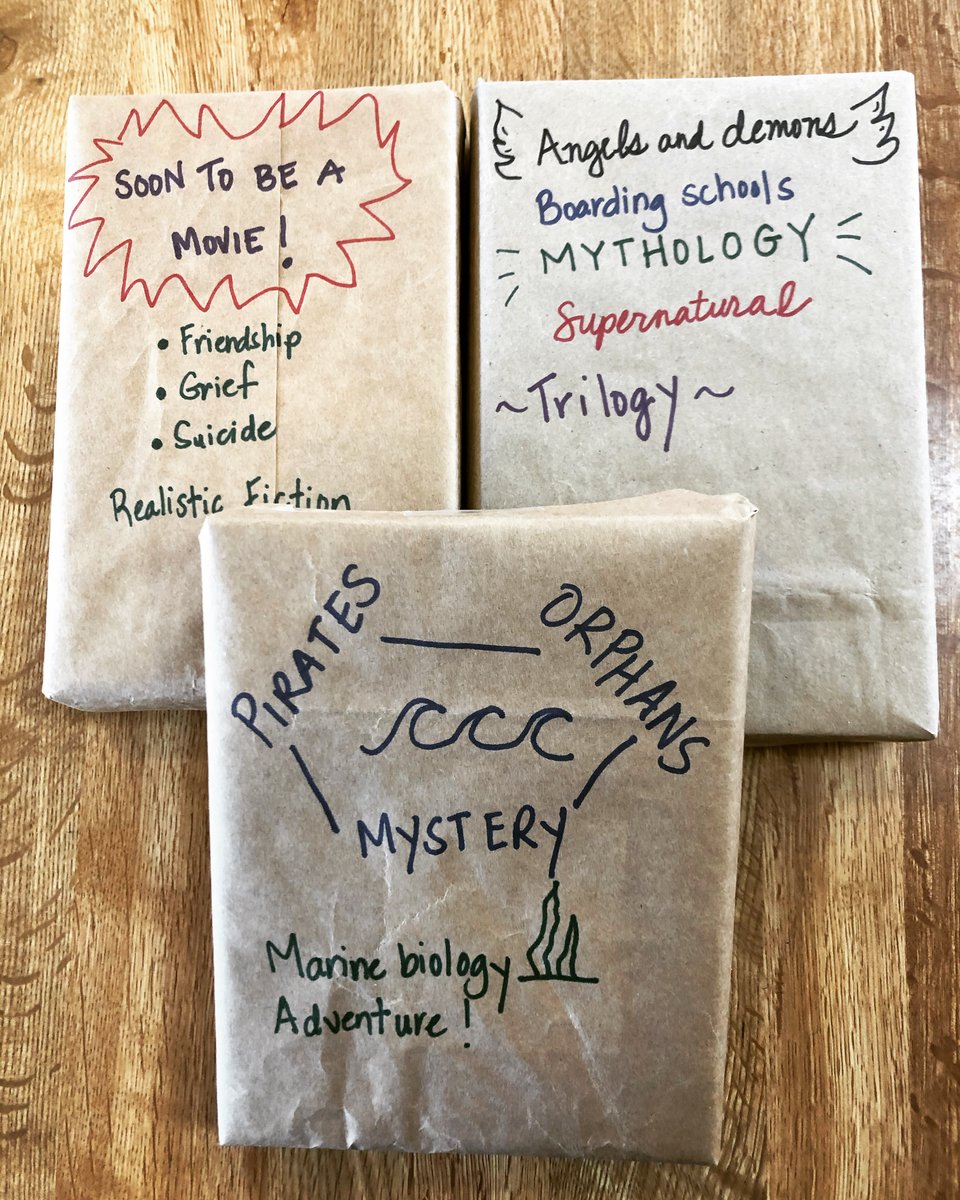 SOON TO BE A
MOVIE!
• Friendship
• Grief
• Suicide
Realistic Fiction
Angels and demons
Boarding schools
MYTHOLOGY
Supernatural
~Trilogy~
PIRATES
ORPHANS
MYSTERY
Marine biology
Adventure!